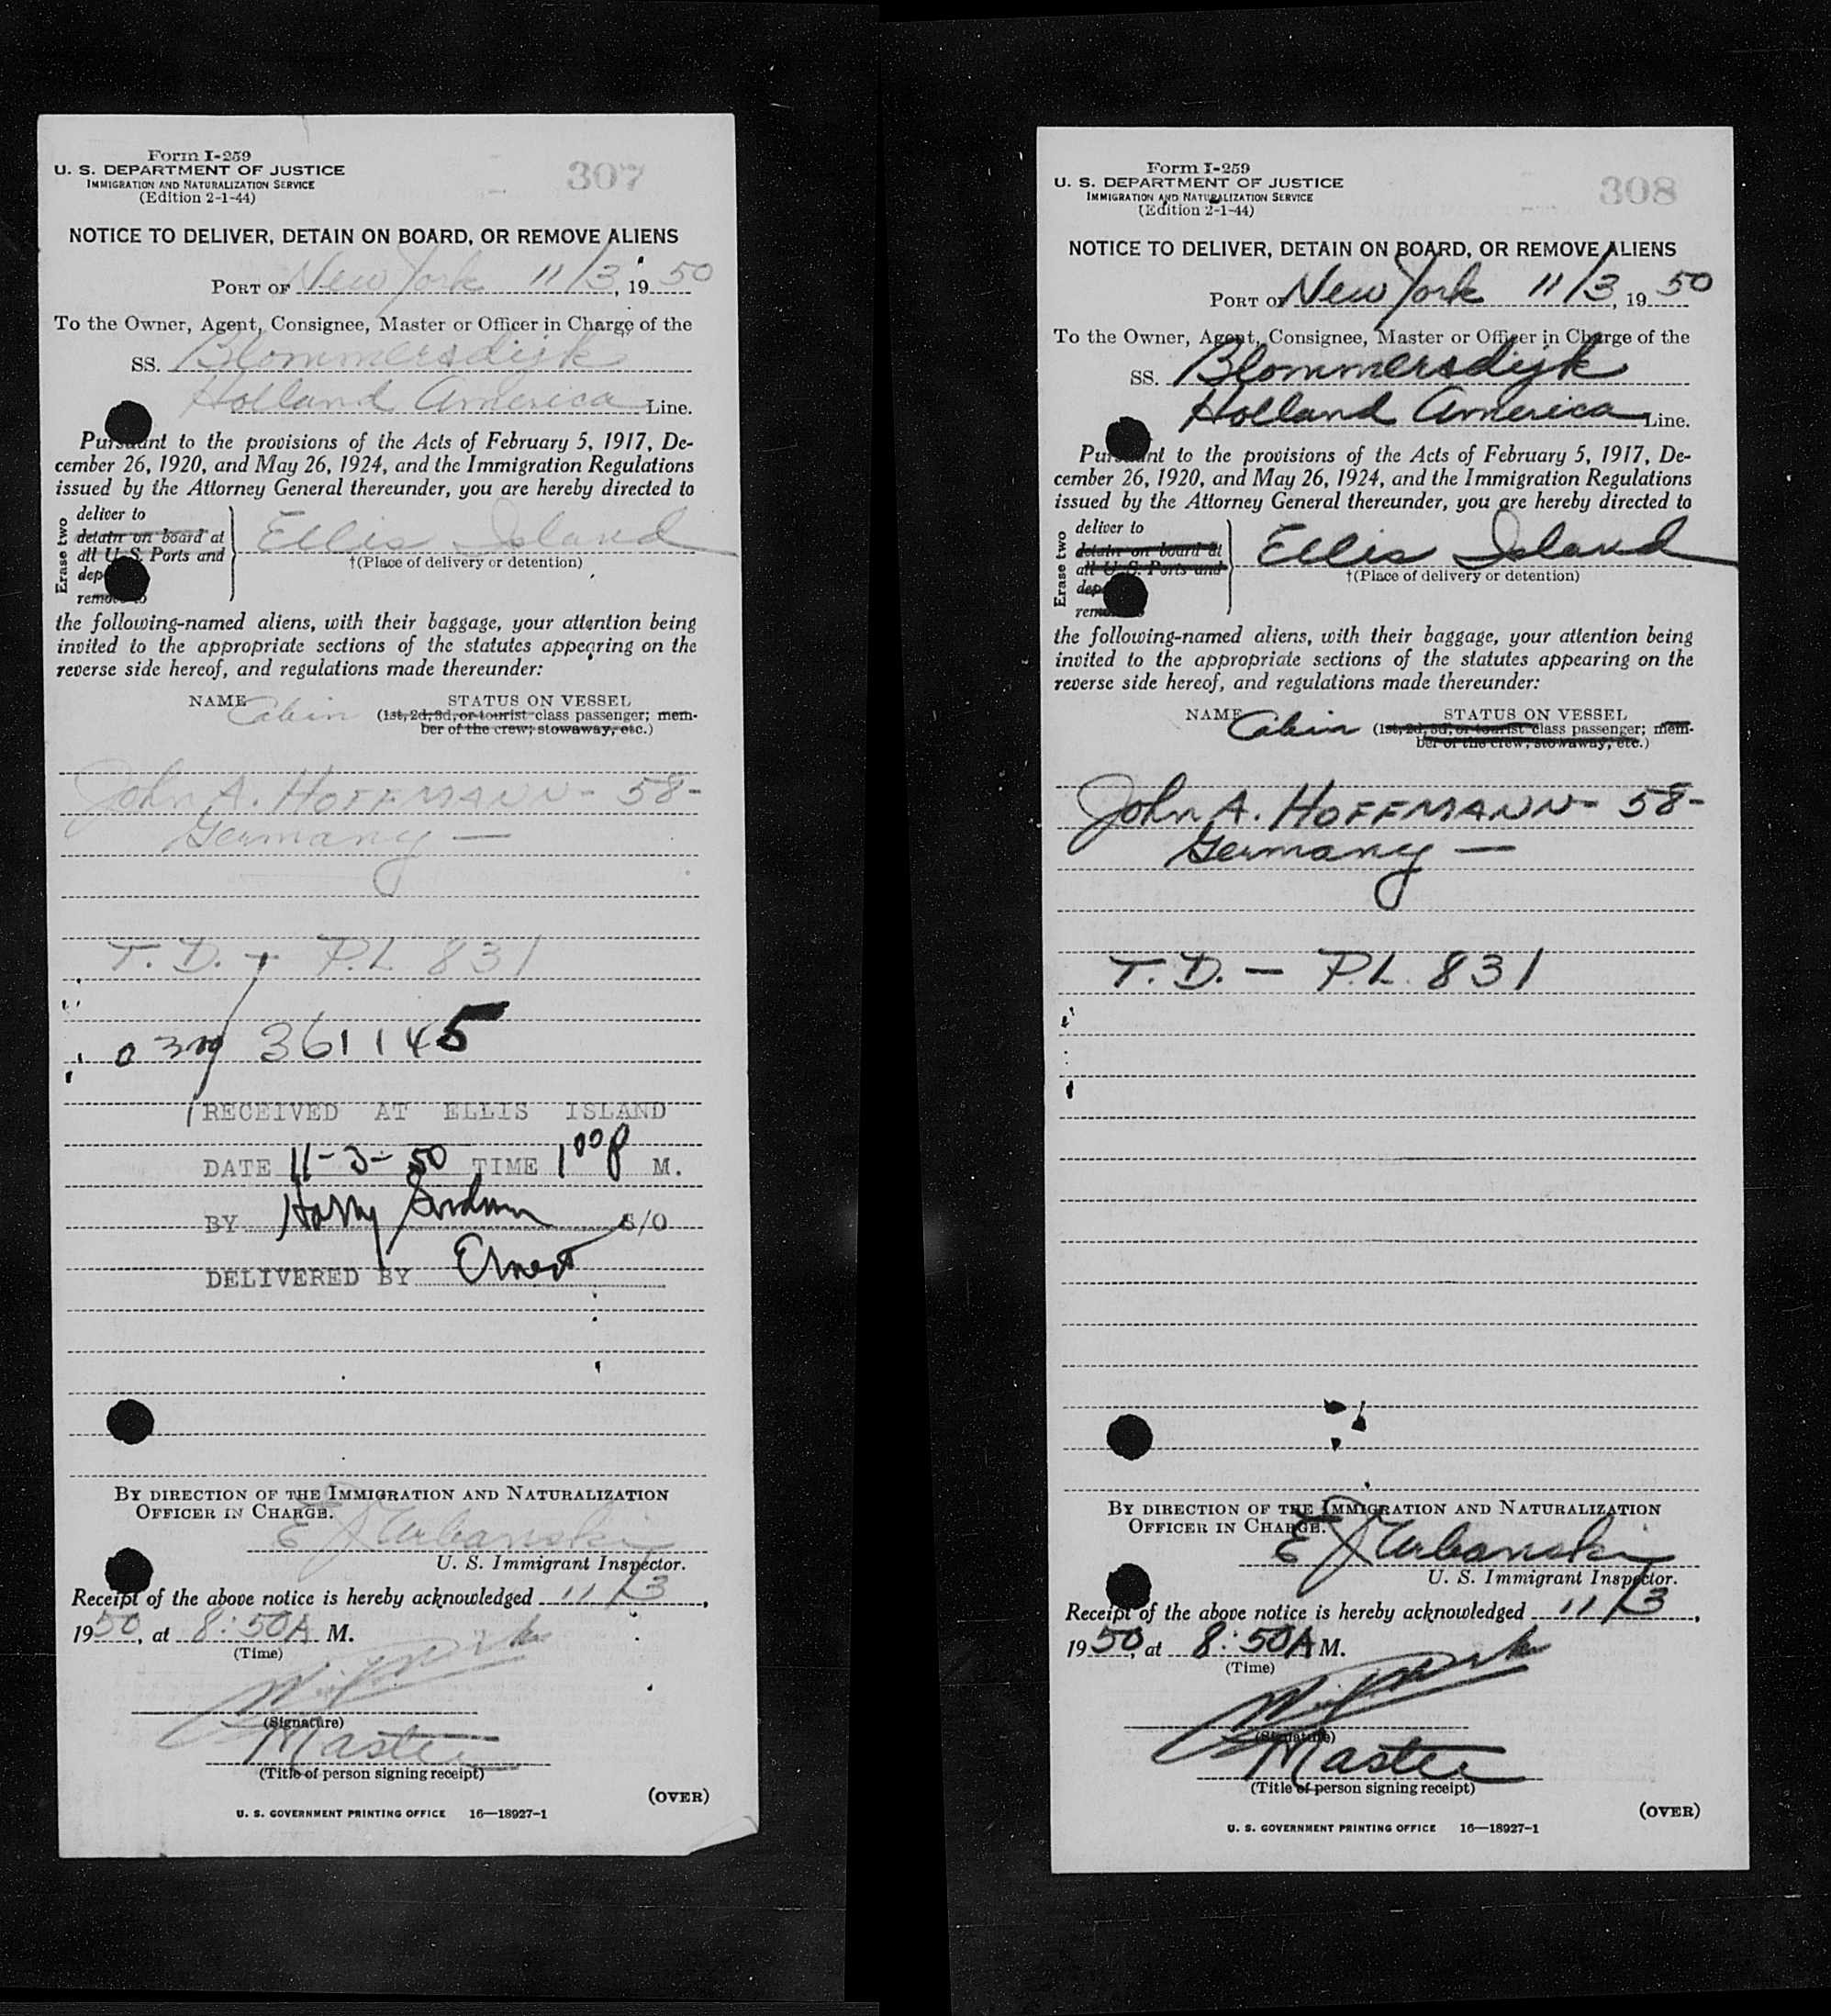 Form I-259
U. S. DEPARTMENT OF JUSTICE
IMMIGRATION AND NATURALIZATION SERVICE
(Edition 2-1-44)
307
NOTICE TO DELIVER, DETAIN ON BOARD, OR REMOVE ALIENS
PORT OF New York 11/3, 19 50
To the Owner, Agent, Consignee, Master or Officer in Charge of the
SS. Blommersdijk
Holland America Line.
Pursuant to the provisions of the Acts of February 5, 1917, De-
cember 26, 1920, and May 26, 1924, and the Immigration Regulations
issued by the Attorney General thereunder, you are hereby directed to
Erase two
deliver to
detain on board at
all U. S. Ports and
dep
remove to
Ellis Island
†(Place of delivery or detention)
the following-named aliens, with their baggage, your attention being
invited to the appropriate sections of the statutes appearing on the
reverse side hereof, and regulations made thereunder:
NAME Cabin STATUS ON VESSEL
(1st, 2d, 3d, or tourist class passenger; mem-
ber of the crew; stowaway, etc.)
John A. HOFFMANN - 58 -
Germany —
T. D. - P.L 831
361145
RECEIVED AT ELLIS ISLAND
DATE 11-3-50 TIME 1 00 P M.
BY Harry S/O
DELIVERED BY Ernest
BY DIRECTION OF THE IMMIGRATION AND NATURALIZATION
OFFICER IN CHARGE.
E J Urbanski
U. S. Immigrant Inspector.
Receipt of the above notice is hereby acknowledged 11/3,
19 50, at 8:50A M.
(Time)
(Signature)
Master
(Title of person signing receipt)
(OVER)
U. S. GOVERNMENT PRINTING OFFICE 16—18927-1
Form I-259
U. S. DEPARTMENT OF JUSTICE
IMMIGRATION AND NATURALIZATION SERVICE
(Edition 2-1-44)
308
NOTICE TO DELIVER, DETAIN ON BOARD, OR REMOVE ALIENS
PORT OF New York 11/3, 19 50
To the Owner, Agent, Consignee, Master or Officer in Charge of the
SS. Blommersdijk
Holland America Line.
Pursuant to the provisions of the Acts of February 5, 1917, De-
cember 26, 1920, and May 26, 1924, and the Immigration Regulations
issued by the Attorney General thereunder, you are hereby directed to
Erase two
deliver to
detain on board at
all U. S. Ports and
dep
remove to
Ellis Island
†(Place of delivery or detention)
the following-named aliens, with their baggage, your attention being
invited to the appropriate sections of the statutes appearing on the
reverse side hereof, and regulations made thereunder:
NAME Cabin STATUS ON VESSEL
(1st, 2d, 3d, or tourist class passenger; mem-
ber of the crew; stowaway, etc.)
John A. HOFFMANN - 58 -
Germany —
T. D. — P.L. 831
BY DIRECTION OF THE IMMIGRATION AND NATURALIZATION
OFFICER IN CHARGE.
E J Urbanski
U. S. Immigrant Inspector.
Receipt of the above notice is hereby acknowledged 11/3,
19 50, at 8:50A M.
(Time)
(Signature)
Master
(Title of person signing receipt)
(OVER)
U. S. GOVERNMENT PRINTING OFFICE 16—18927-1